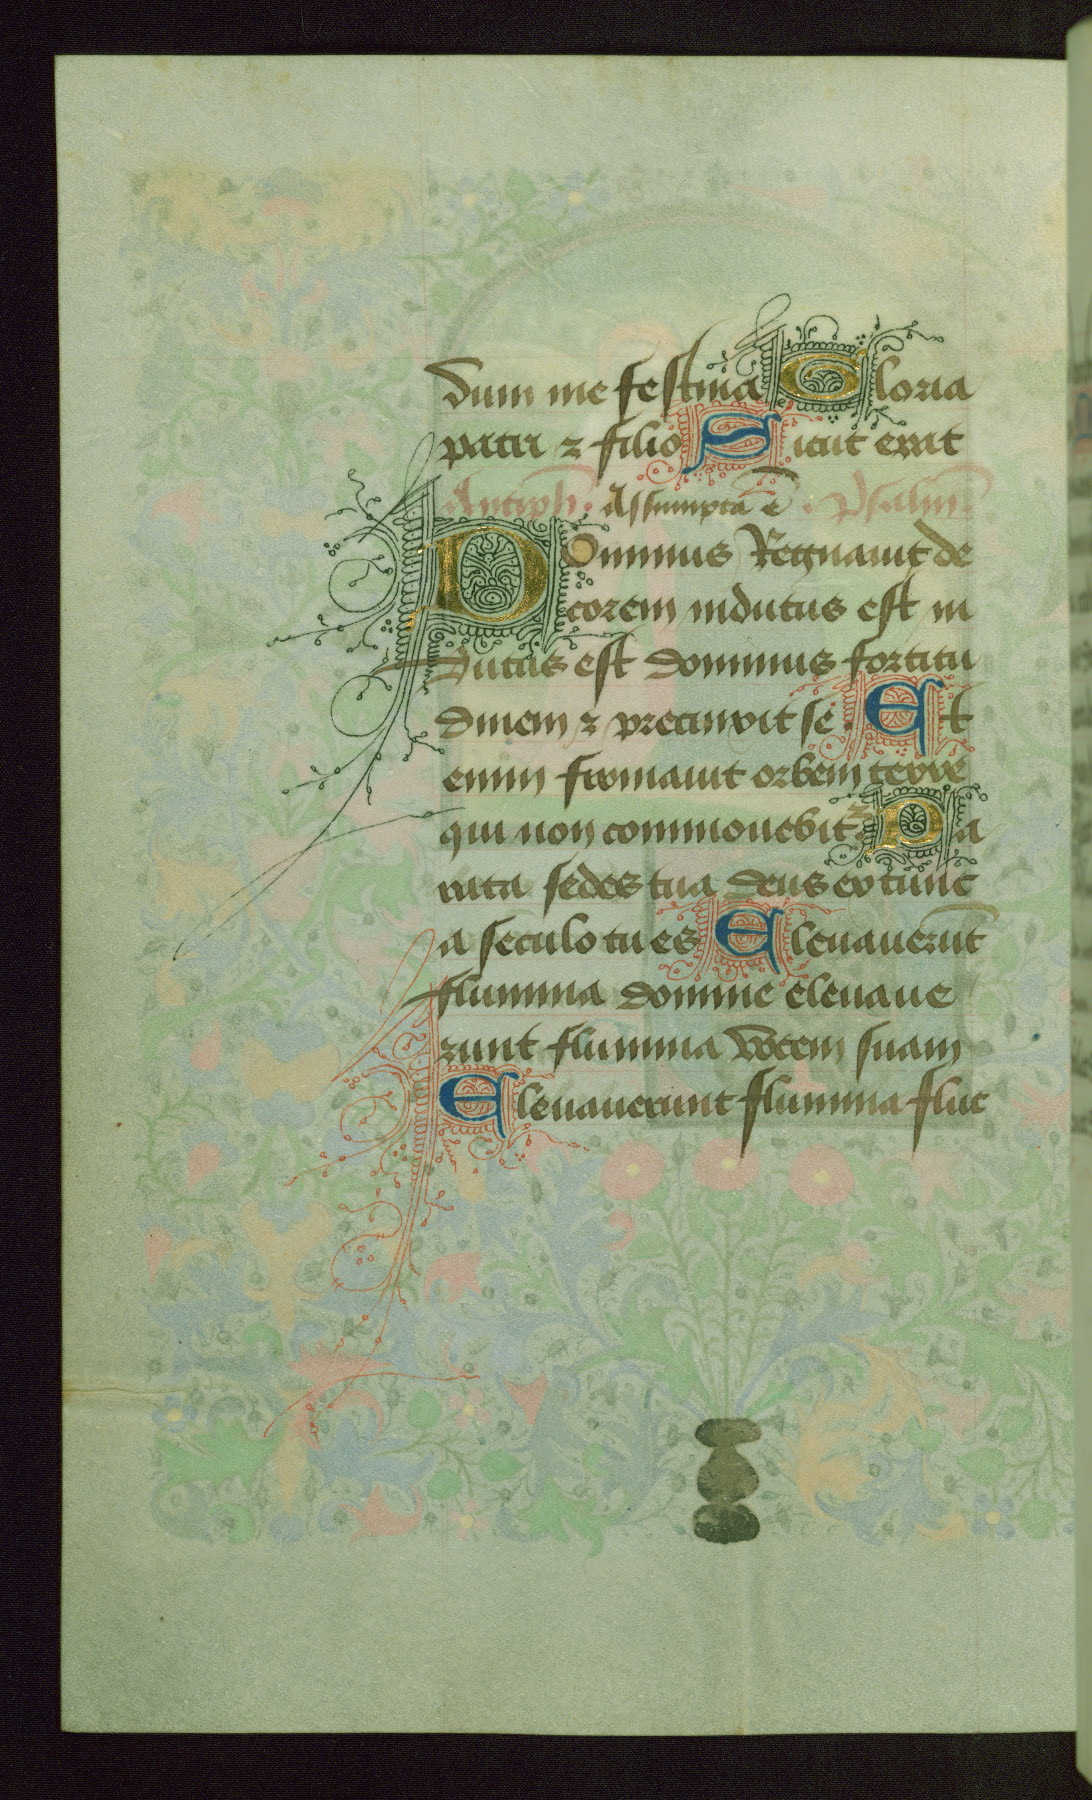 dum me festina Gloria
patri ⁊ filio Sicut erat
Antiph. Assumpta ē. Psalm̄.
DOminus Regnauit de
corem indutus est in
dutus est dominus fortitu
dinem ⁊ precinxit se. Et
enim firmauit orbem terre
qui non commouebit᷑ Pa
rata sedes tua deus ex tunc
a seculo tu es Eleuauerūt
flumina domine eleuaue
runt flumina vocem suam
Eleuauerunt flumina fluc